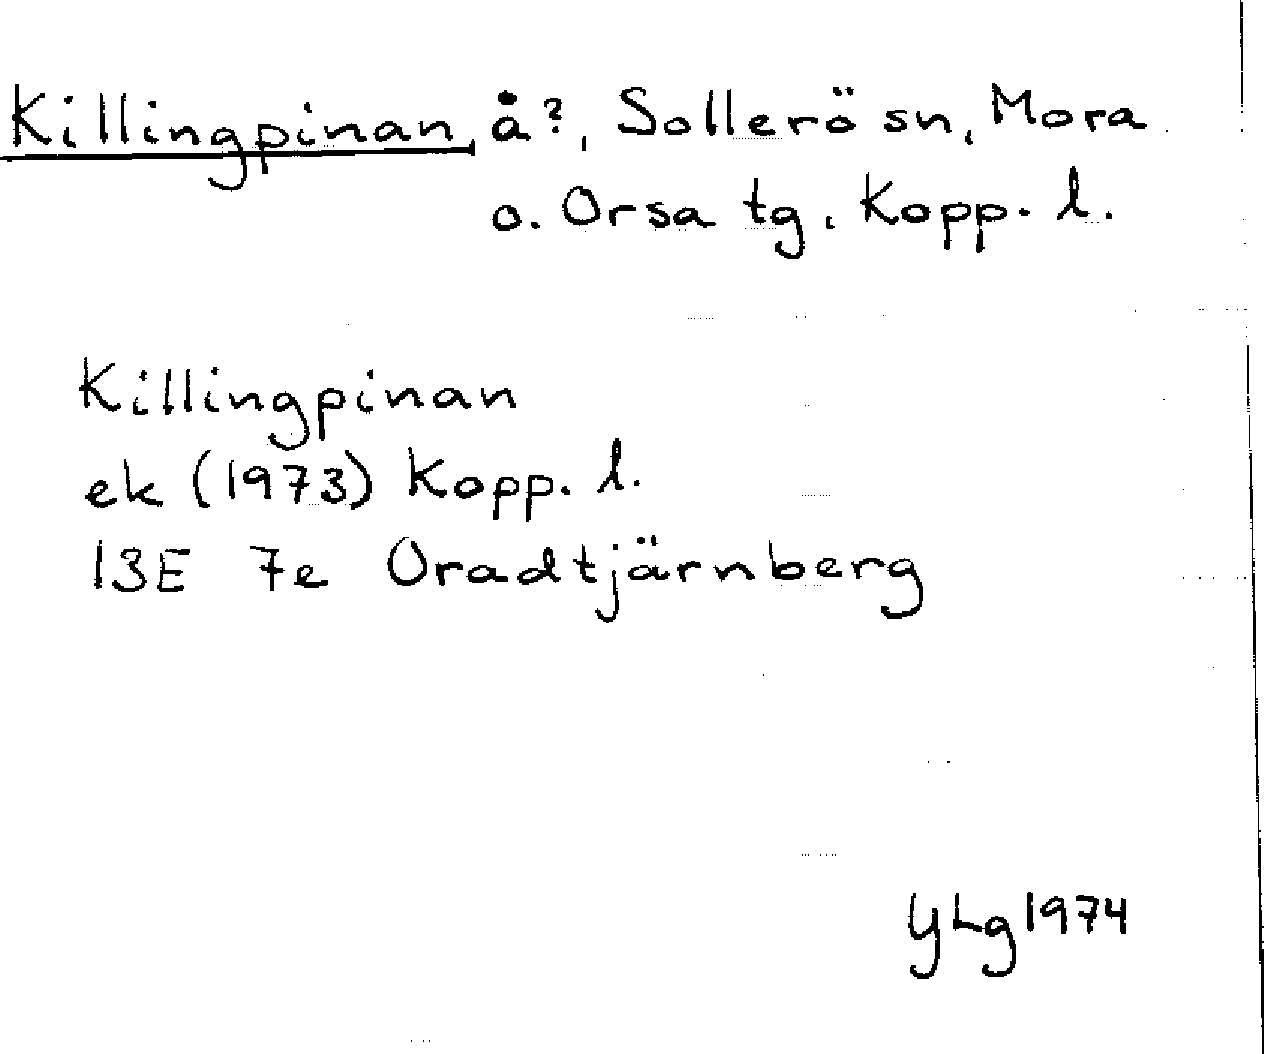 Killingpinan, å?, Sollerö sn, Mora
o. Orsa tg, Kopp. l.
Killingpinan
ek (1973) Kopp. l.
13E 7e Oradtjärnberg
YLg 1974